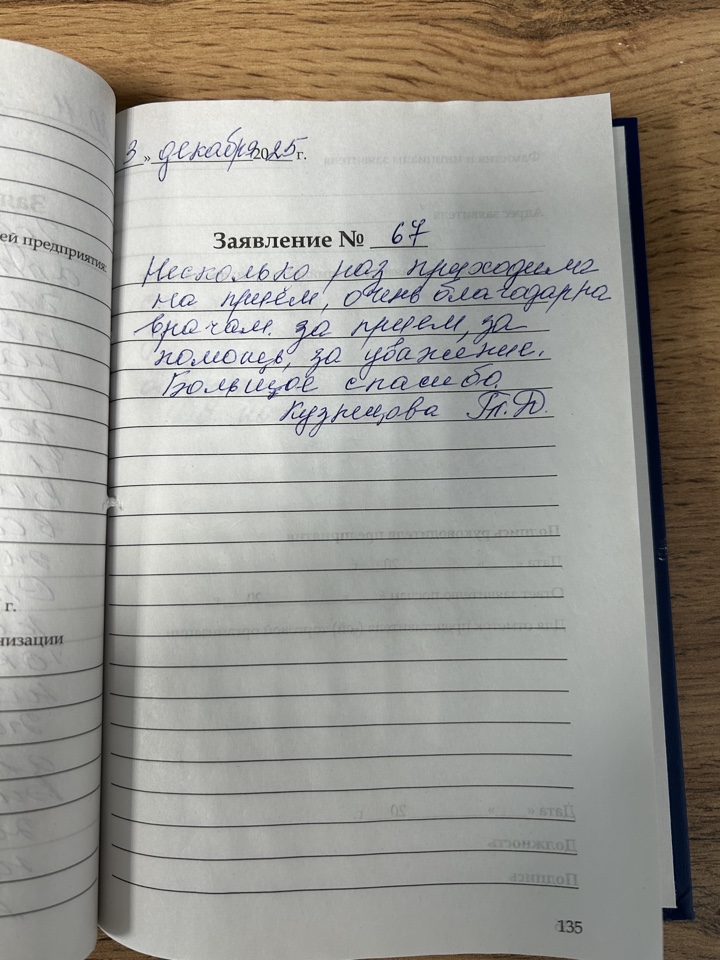 3 » декабря 2025 г.
Заявление № 67
Несколько раз приходила
на приём, очень благодарна
врачам за прием, за
помощь, за уважение.
Большое спасибо.
Кузнецова Т.Д.
ей предприятия:
г.
низации
135